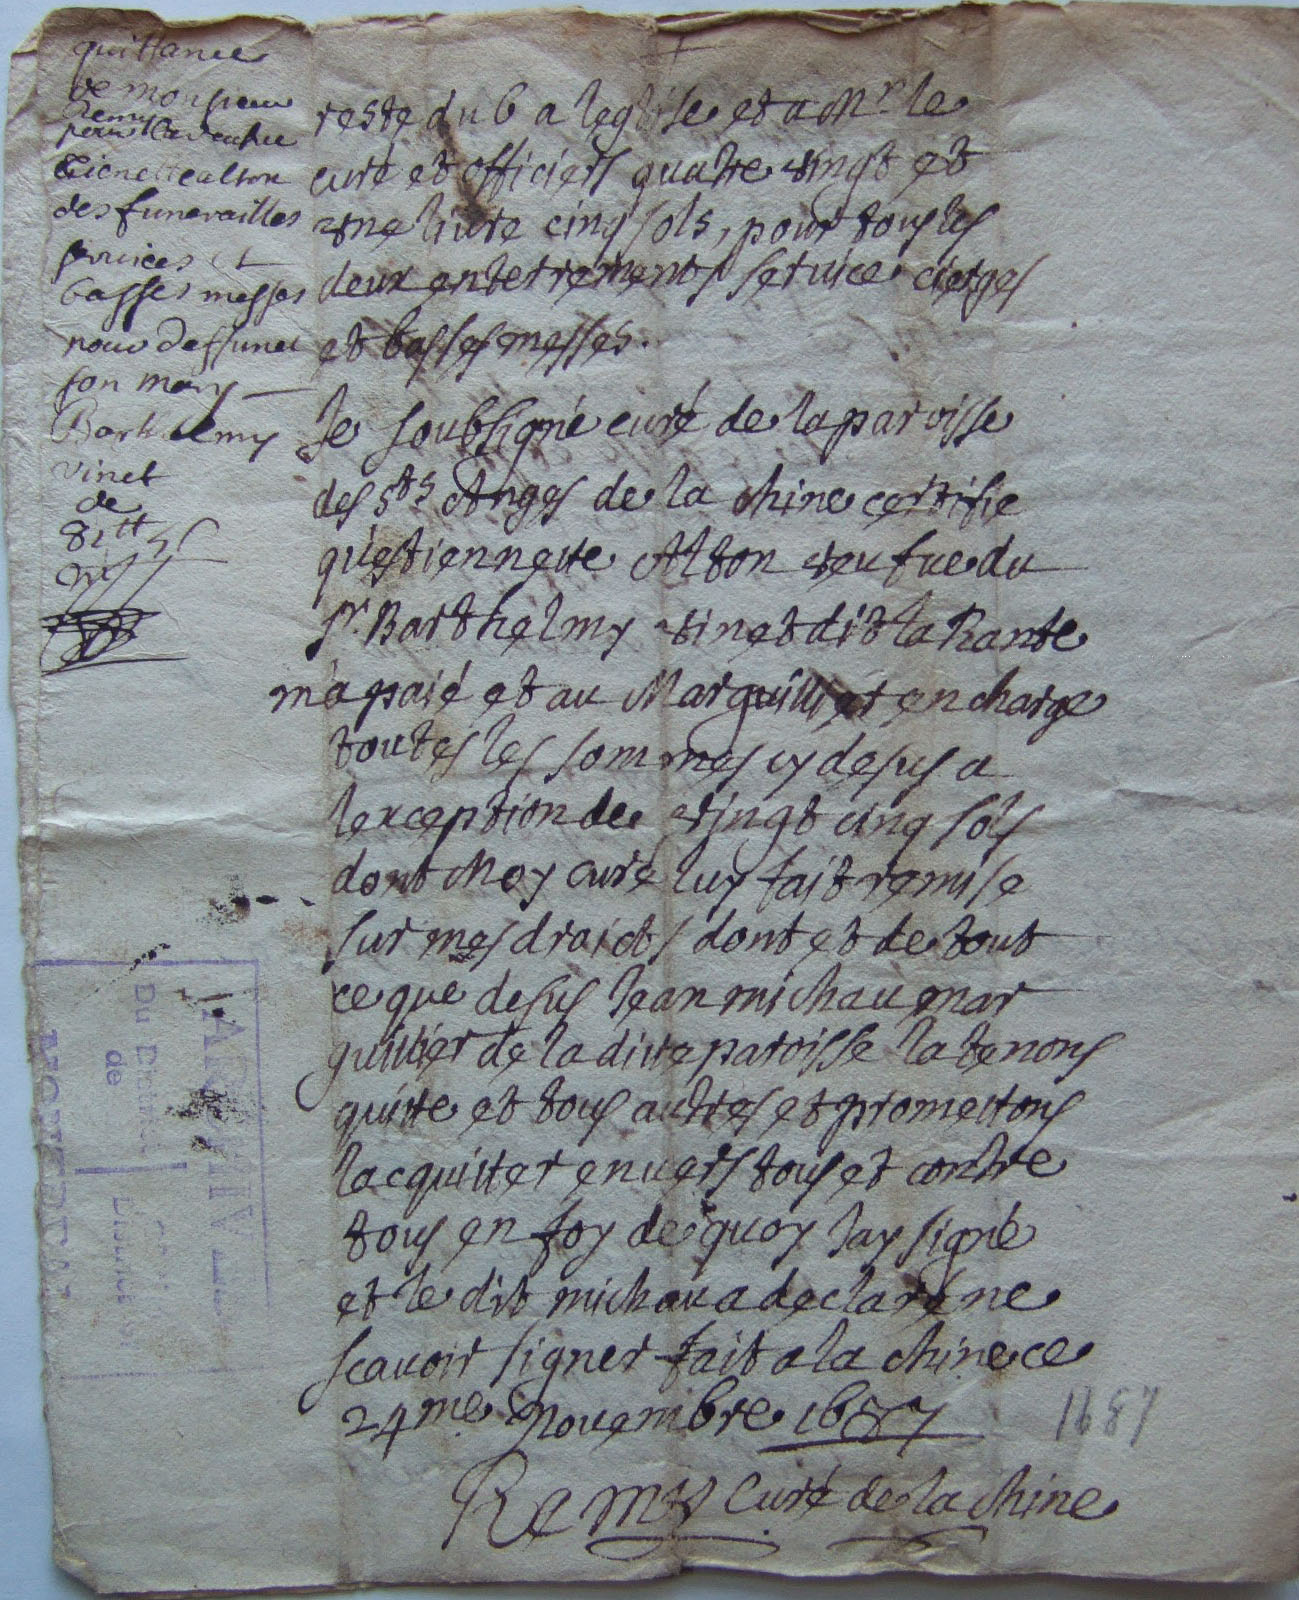 quittance
de monsieur
Remy
pour la veufve
Etienette alton
des funerailles
services et
basses messes
pour deffunct
son mary
Barthelemy
vinet
de
81tt 5s
reste dub a leglise et a Mr. le
curé et officiers quatre vingt et
une livre cinq sols, pour tous les
deux enterrements service cierges
et basses messes.
Je soubsigné curé de la paroisse
des sts Anges de la chine certifie
qu'estiennette Alton veufue du
sr. Barthelmy vinet dit la Rante
m'a paié et au Marguillier en charge
toutes les sommes cy desus a
lexception de vingt cinq sols
dont Moy curé luy fait remise
sur mes droicts dont et de tout
ce que desus Jean michau mar
guillier de la ditte paroisse la tenons
quitte et tous autres et promettons
lacquitter envers tous et contre
tous en foy de quoy Jay signé
et le dit michau a declaré ne
scavoir signer fait a la chine ce
24me. Novembre 1687
1687
Remy Curé de la chine
ARCHIV
Du District
de
MONTREAL